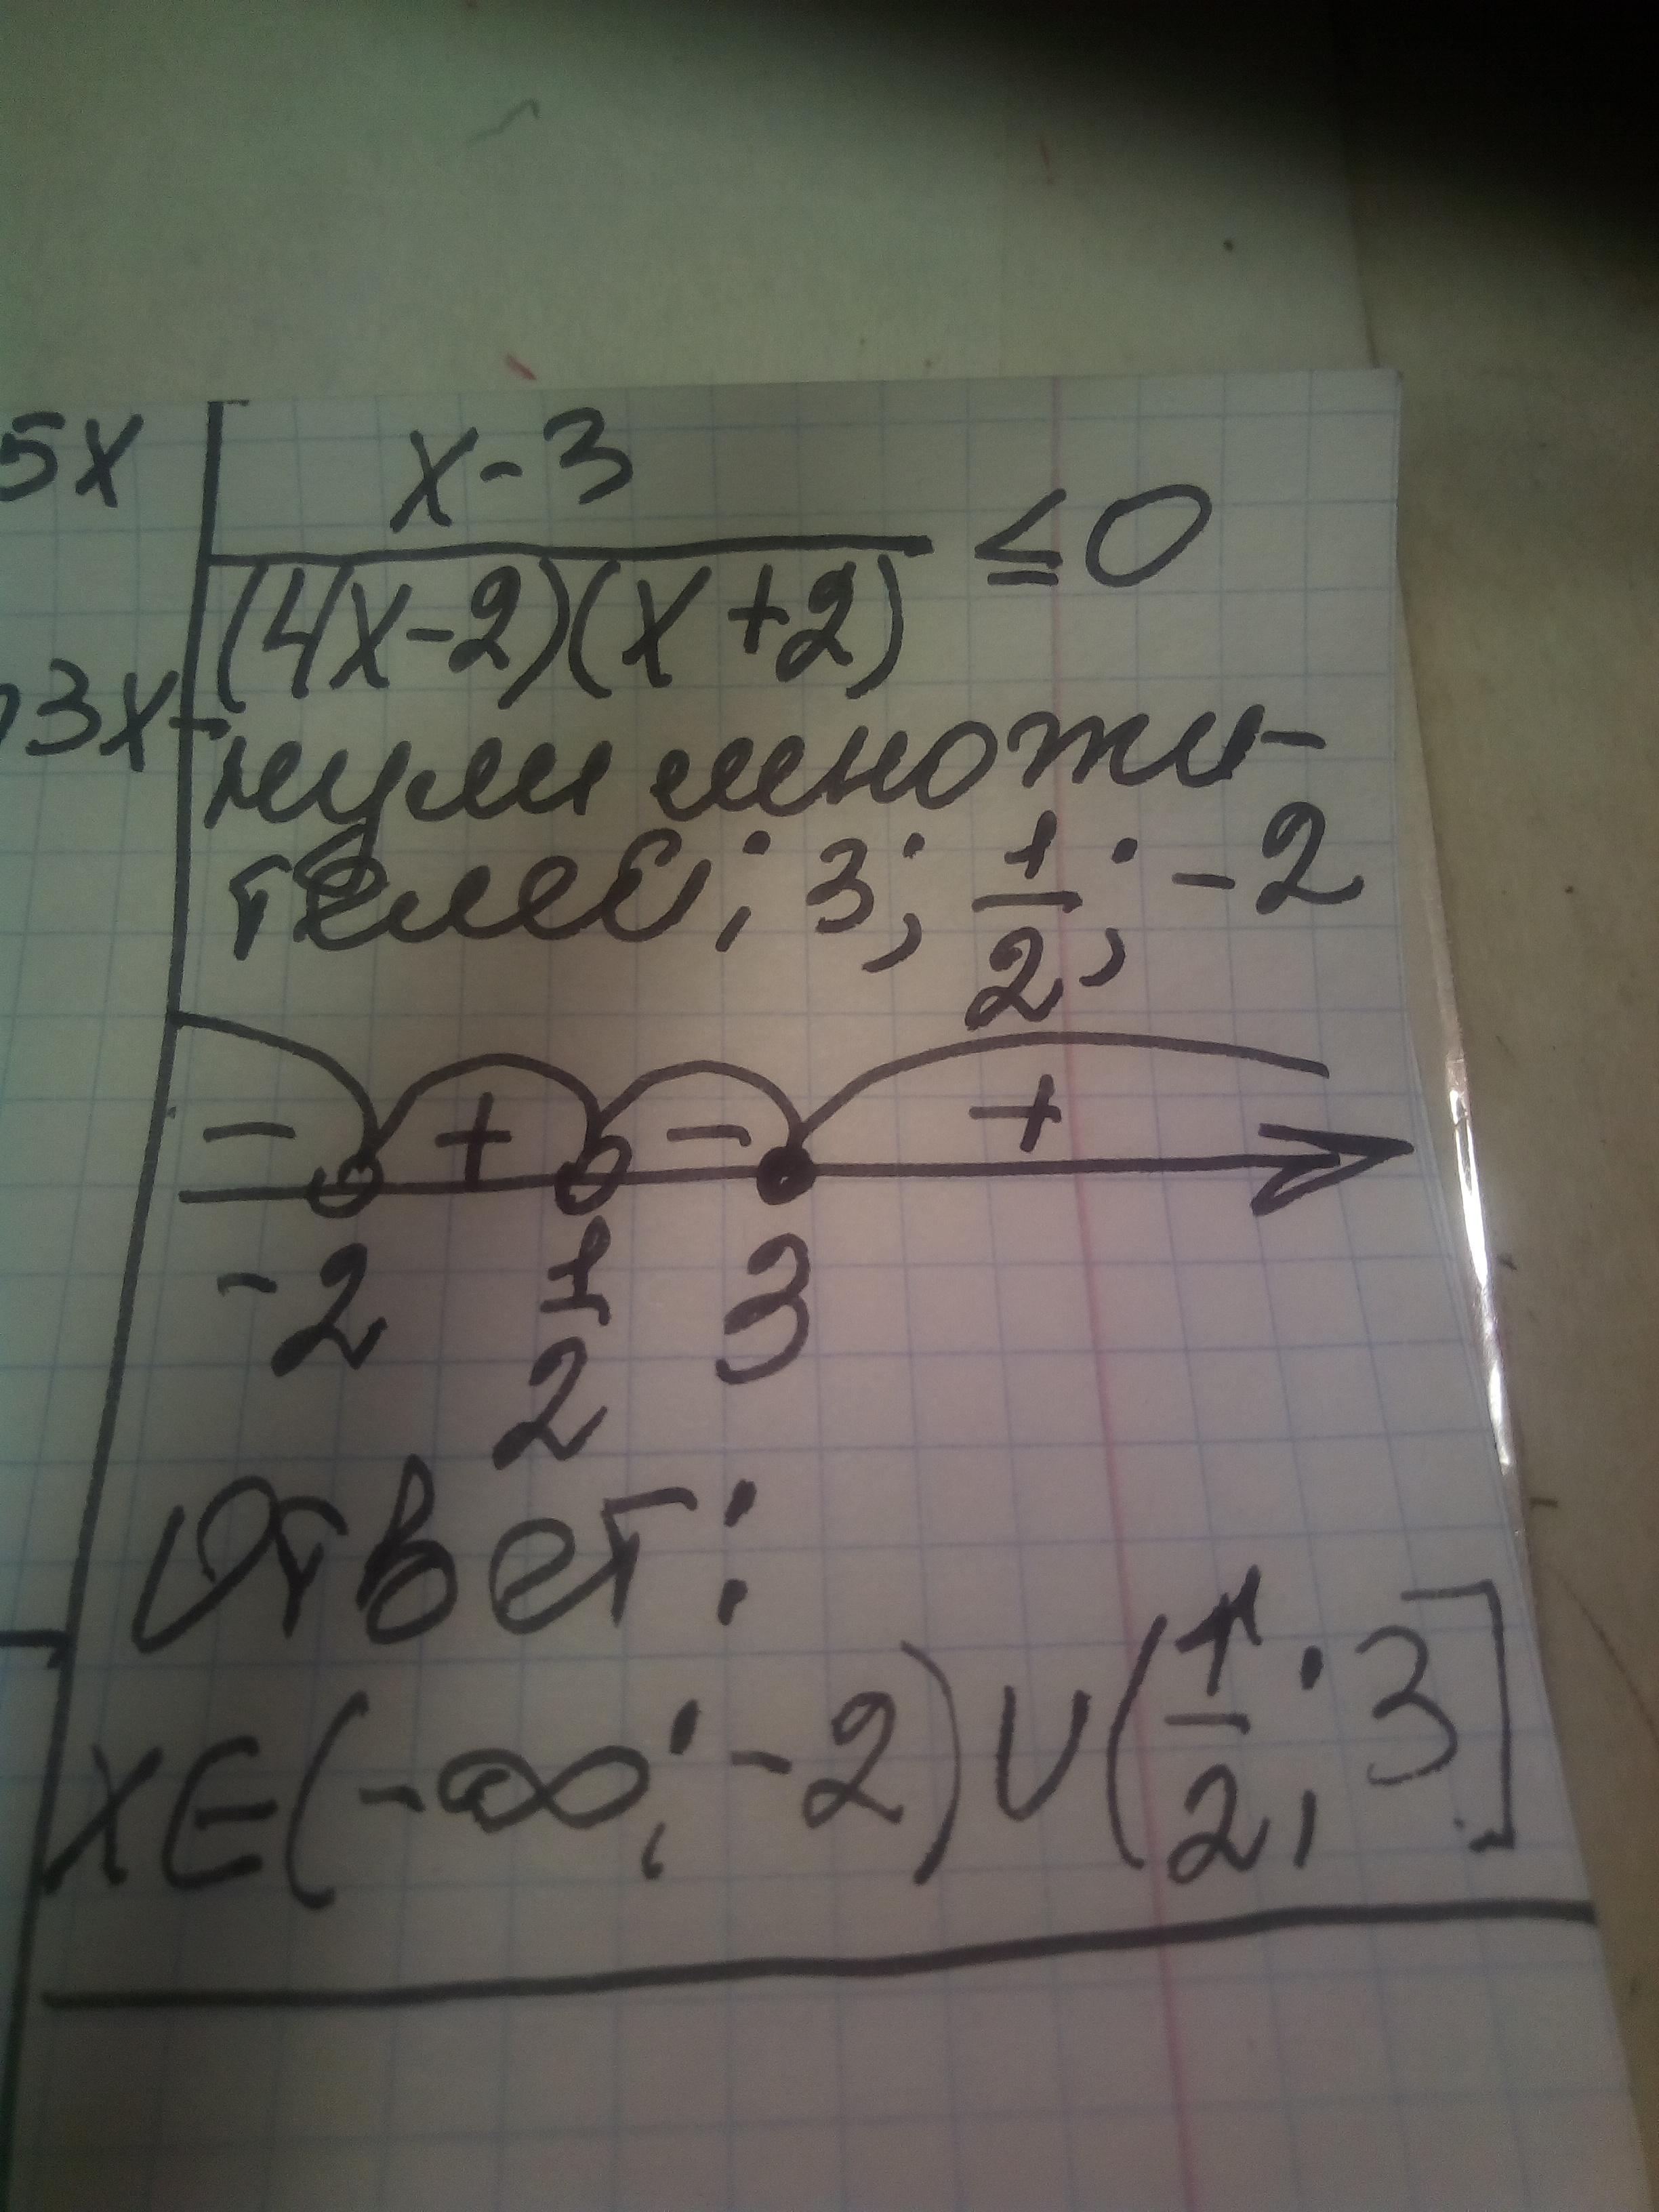 5x
x-3
≤0
(4x-2)(x+2)
3x-
нули множи-
телей; 3; 1/2; -2
- + - +
-2 1/2 3
Ответ:
x∈(-∞; -2)∪(1/2; 3]